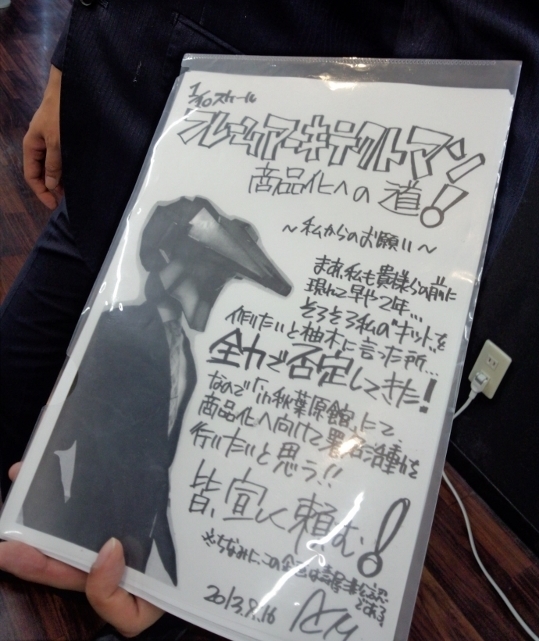 1/10スケール
フレームアーキテクトマン
商品化への道!
～私からのお願い～
まあ、私も貴様らの前に
現れて早や2年…
そろそろ私の"キット"を
作りたいと柚木に言った所…
全力で否定してきた!
なので「in秋葉原館」にて、
商品化へ向けて署名活動を
行いたいと思う!!
皆、宜しく頼む!
※ちなみに、この企画は
である
2013.9.16